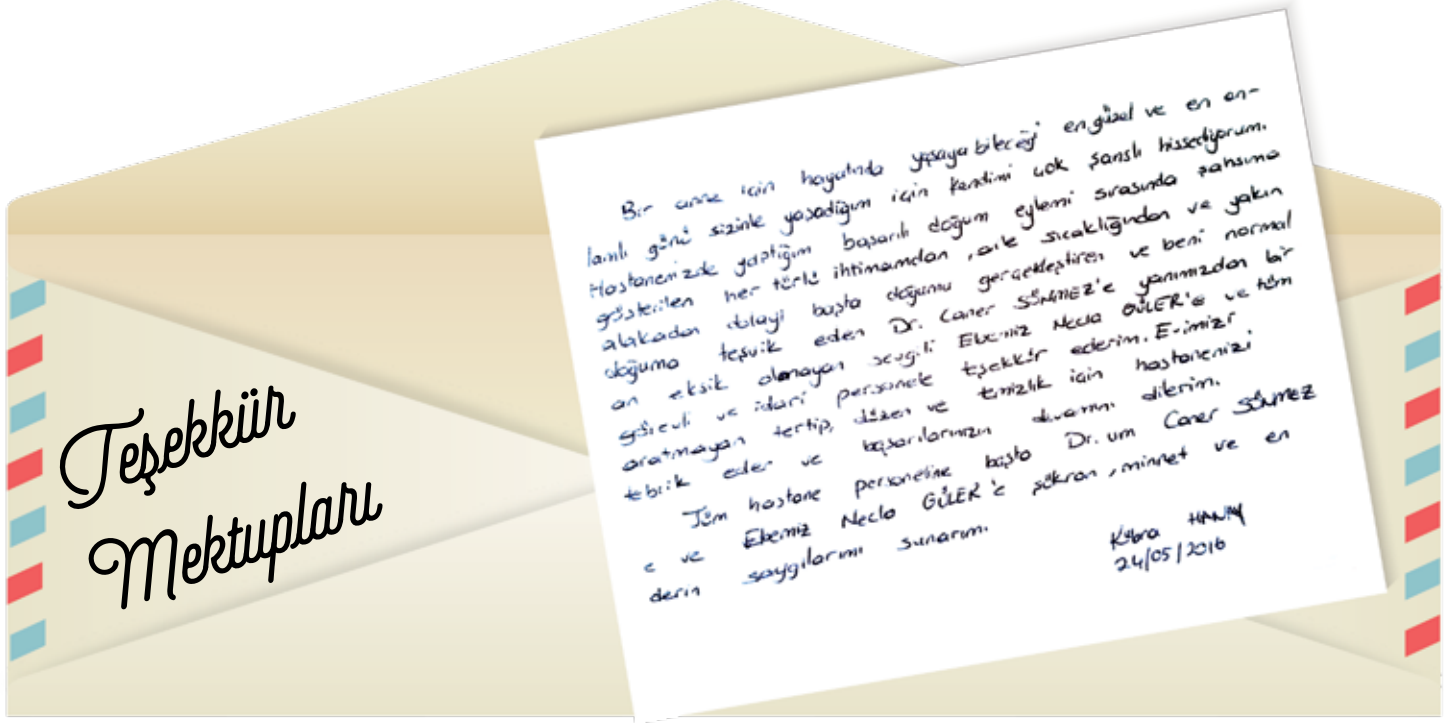 Teşekkür
Mektupları
Bir anne için hayatında yaşayabileceği en güzel ve en an-
lamlı günü sizinle yaşadığım için kendimi çok şanslı hissediyorum.
Hastanenizde yaptığım başarılı doğum eylemi sırasında şahsıma
gösterilen her türlü ihtimamdan, aile sıcaklığından ve yakın
alakadan dolayı başta doğumu gerçekleştiren ve beni normal
doğuma teşvik eden Dr. Caner SÖNMEZ'e yanımızdan bir
an eksik olmayan sevgili Ebemiz Necla GÜLER'e ve tüm
görevli ve idari personele teşekkür ederim. Evimizi
aratmayan tertip, düzen ve temizlik için hastanenizi
tebrik eder ve başarılarınızın devamını dilerim.
Tüm hastane personeline başta Dr.um Caner SÖNMEZ
e ve Ebemiz Necla GÜLER'e şükran, minnet ve en
derin saygılarımı sunarım.
Kübra
24/05/2016